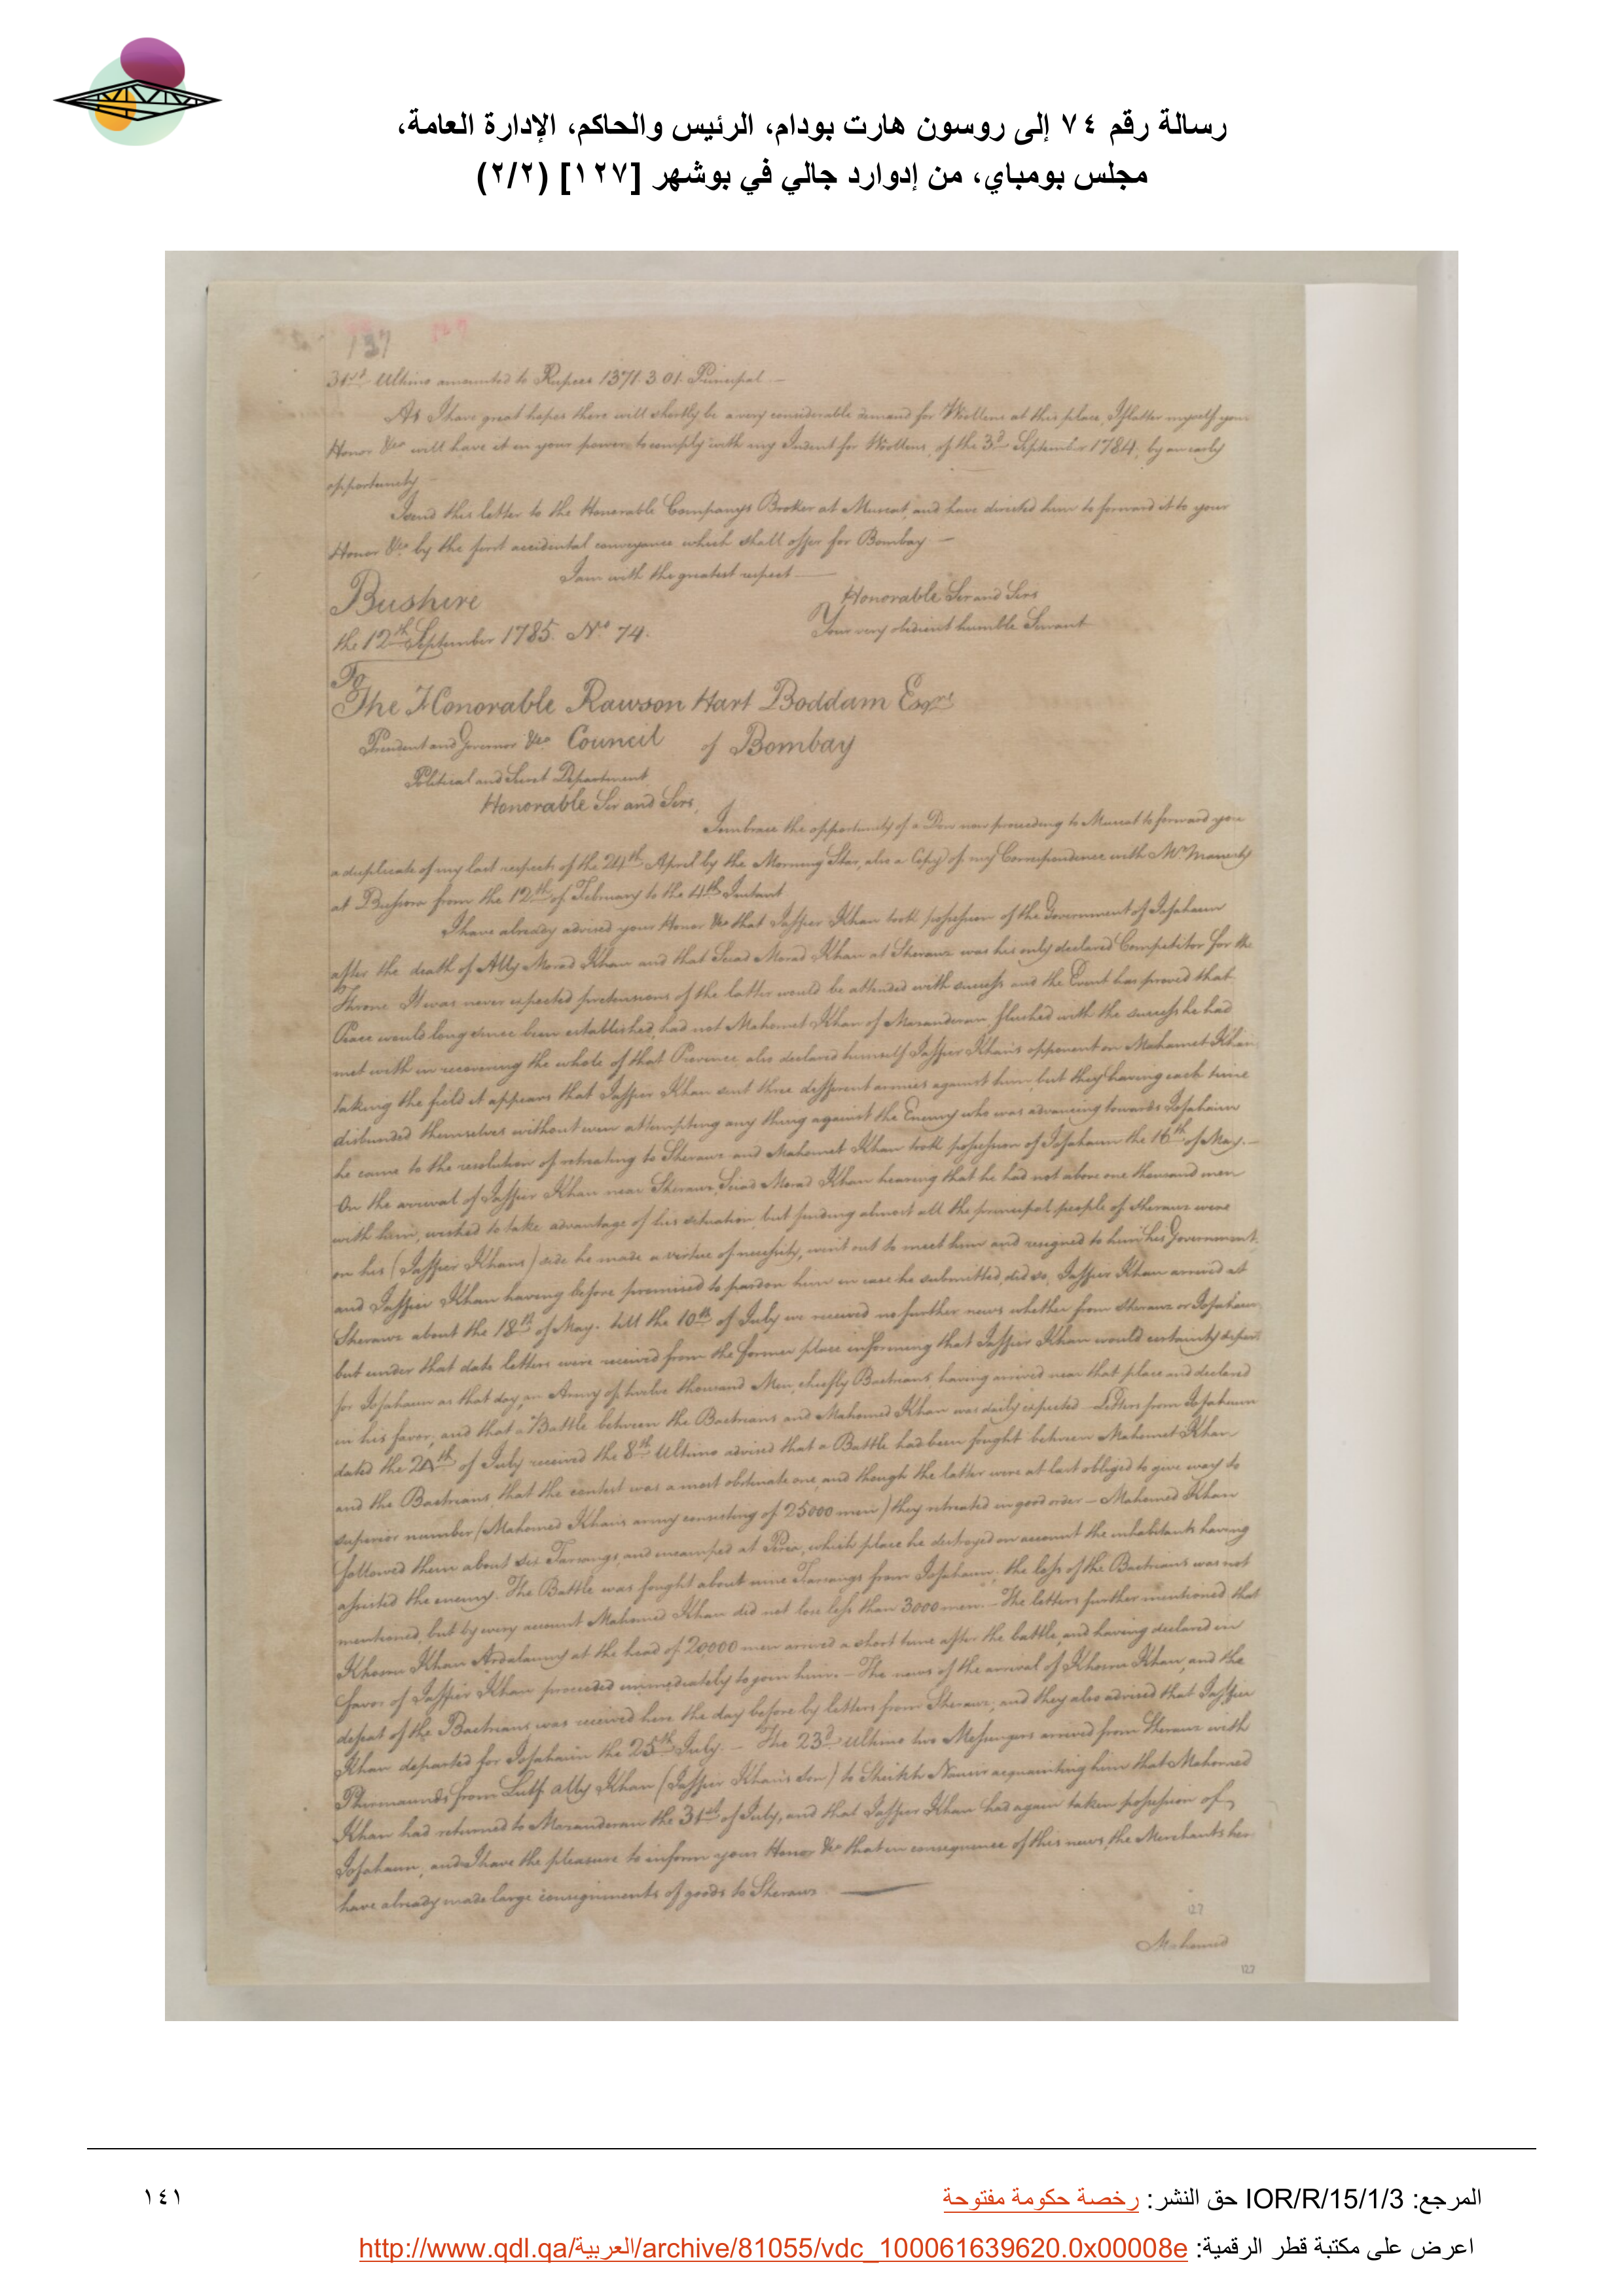 رسالة رقم ٧٤ إلى روسون هارت بودام، الرئيس والحاكم، الإدارة العامة،
مجلس بومباي، من إدوارد جالي في بوشهر [١٢٧] (٢/٢)
137
31st Ultimo amounted to Rupees 1371.3.01. Principal.—
As I have great hopes there will shortly be a very considerable demand for Woollens at this place, I flatter myself your
Honor &ca will have it in your power to comply with my Indent for Woollens, of the 3d September 1784, by an early
opportunity
I send this letter to the Honorable Companys Broker at Muscat, and have directed him to forward it to your
Honor &ca by the first accidental conveyance which shall offer for Bombay —
I am with the greatest respect —
Honorable Sir and Sirs
Bushire
Your very obedient humble Servant
the 12th September 1785. No. 74.
To
The Honorable Rawson Hart Boddam Esqre
President and Governor &ca Council of Bombay
Political and Secret Department
Honorable Sir and Sirs,
I embrace the opportunity of a Dow now proceeding to Muscat to forward you
a duplicate of my last respects of the 24th April by the Morning Star, also a Copy of my Correspondence with Mr. Manesty
at Bussora from the 12th of February to the 4th Instant
I have already advised your Honor &ca that Jaffier Khan took possession of the Government of Isfahaun
after the death of Ally Morad Khan and that Seiad Morad Khan at Sheraux was his only declared Competitor for the
Throne It was never expected pretensions of the latter would be attended with success and the Event has proved that
Peace would long since been established, had not Mahomet Khan of Mazanderan, flushed with the success he had
met with in recovering the whole of that Province also declared himself Jaffier Khan's opponent on Mahomet Khan
taking the field it appears that Jaffier Khan sent three different armies against him, but they having each time
disbanded themselves without even attempting any thing against the Enemy who was advancing towards Isfahaun
he came to the resolution of retreating to Sheraux and Mahomet Khan took possession of Isfahaun the 16th of May.—
On the arrival of Jaffier Khan near Sheraux, Seiad Morad Khan hearing that he had not above one thousand men
with him, wished to take advantage of his situation, but finding almost all the principal people of Sheraux were
on his (Jaffier Khans) side he made a virtue of necessity, went out to meet him and resigned to him his Government,
and Jaffier Khan having before promised to pardon him in case he submitted, did so, Jaffier Khan arrived at
Sheraux about the 18th of May. till the 10th of July we received no further news whether from Sheraux or Isfahaun
but under that date letters were received from the former place informing that Jaffier Khan would certainly depart
for Isfahaun as that day, an Army of twelve thousand Men, chiefly Bactrians, having arrived near that place and declared
in his favor, and that a Battle between the Bactrians and Mahomed Khan was daily expected — Letters from Isfahaun
dated the 24th of July received the 8th Ultimo advised that a Battle had been fought between Mahomet Khan
and the Bactrians, that the contest was a most obstinate one, and though the latter were at last obliged to give way to
superior number (Mahomed Khans army consisting of 25000 men) they retreated in good order — Mahomed Khan
followed them about six Farsangs, and encamped at , which place he destroyed on account the inhabitants having
assisted the enemy. The Battle was fought about nine Farsangs from Isfahaun, the loss of the Bactrians was not
mentioned, but by every account Mahomed Khan did not lose less than 3000 men.— The letters further mentioned that
Khosru Khan Ardalauny at the head of 20000 men arrived a short time after the battle, and having declared in
favor of Jaffier Khan proceeded immediately to join him.— The news of the arrival of Khosru Khan, and the
defeat of the Bactrians was received here the day before by letters from Sheraux, and they also advised that Jaffier
Khan departed for Isfahaun the 25th July.— The 23d Ultimo two Messengers arrived from Sheraux with
Phirmaunds from Lutf Ally Khan (Jaffier Khan's son) to Sheikh Nassir acquainting him that Mahomed
Khan had returned to Mazanderan the 31st of July, and that Jaffier Khan had again taken possession of
Isfahaun, and I have the pleasure to inform your Honor &ca that in consequence of this news, the Merchants here
have already made large consignments of goods to Sheraux. —
127
Mahomed
127
المرجع: IOR/R/15/1/3 حق النشر: رخصة حكومة مفتوحة
١٤١
اعرض على مكتبة قطر الرقمية: http://www.qdl.qa/العربية/archive/81055/vdc_100061639620.0x00008e